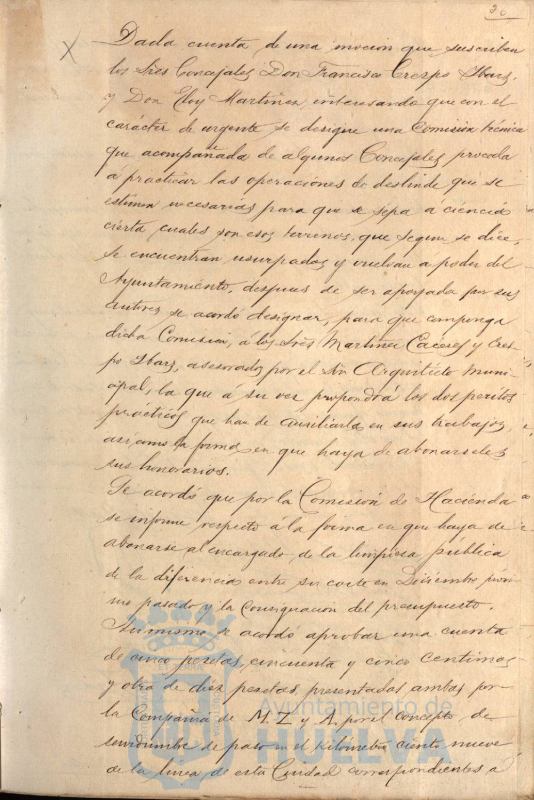 30
X
Dada cuenta de una mocion que suscriben
los Sres Concejales Don Francisco Crespo Ybarz,
y Don Eloy Martinez, interesando que con el
carácter de urgente se designe una Comisión técnica
que acompañada de algunos Concejales proceda
a practicar las operaciones de deslinde que se
estimen necesarias para que se sepa á ciencia
cierta cuales son esos terrenos, que segun se dice,
se encuentran usurpados y vuelvan a poder del
Ayuntamiento, despues de ser apoyada por sus
autores se acordó designar, para que componga
dicha Comision, á los Sres Martinez Caceres y Cres-
po Ybarz, asesorados por el Sr Arquitecto muni-
cipal, la que á su vez propondrá los dos peritos
practicos que han de auxiliarla en sus trabajos,
asi como la forma en que haya de abonarseles
sus honorarios.
Se acordó que por la Comisión de Hacienda
se informe respecto á la forma en que haya de
abonarse al encargado de la limpieza pública
de la diferencia entre su coste en Diciembre próxi-
mo pasado y la consignacion del presupuesto.
Asimismo se acordó aprobar una cuenta
de cinco pesetas, cincuenta y cinco centimos
y otra de diez pesetas, presentadas ambas por
la Compañia de M. Z y A. por el concepto de
servidumbre de paso en el kilometro ciento nueve
de la linea de esta Ciudad correspondientes a
Ayuntamiento de
HUELVA